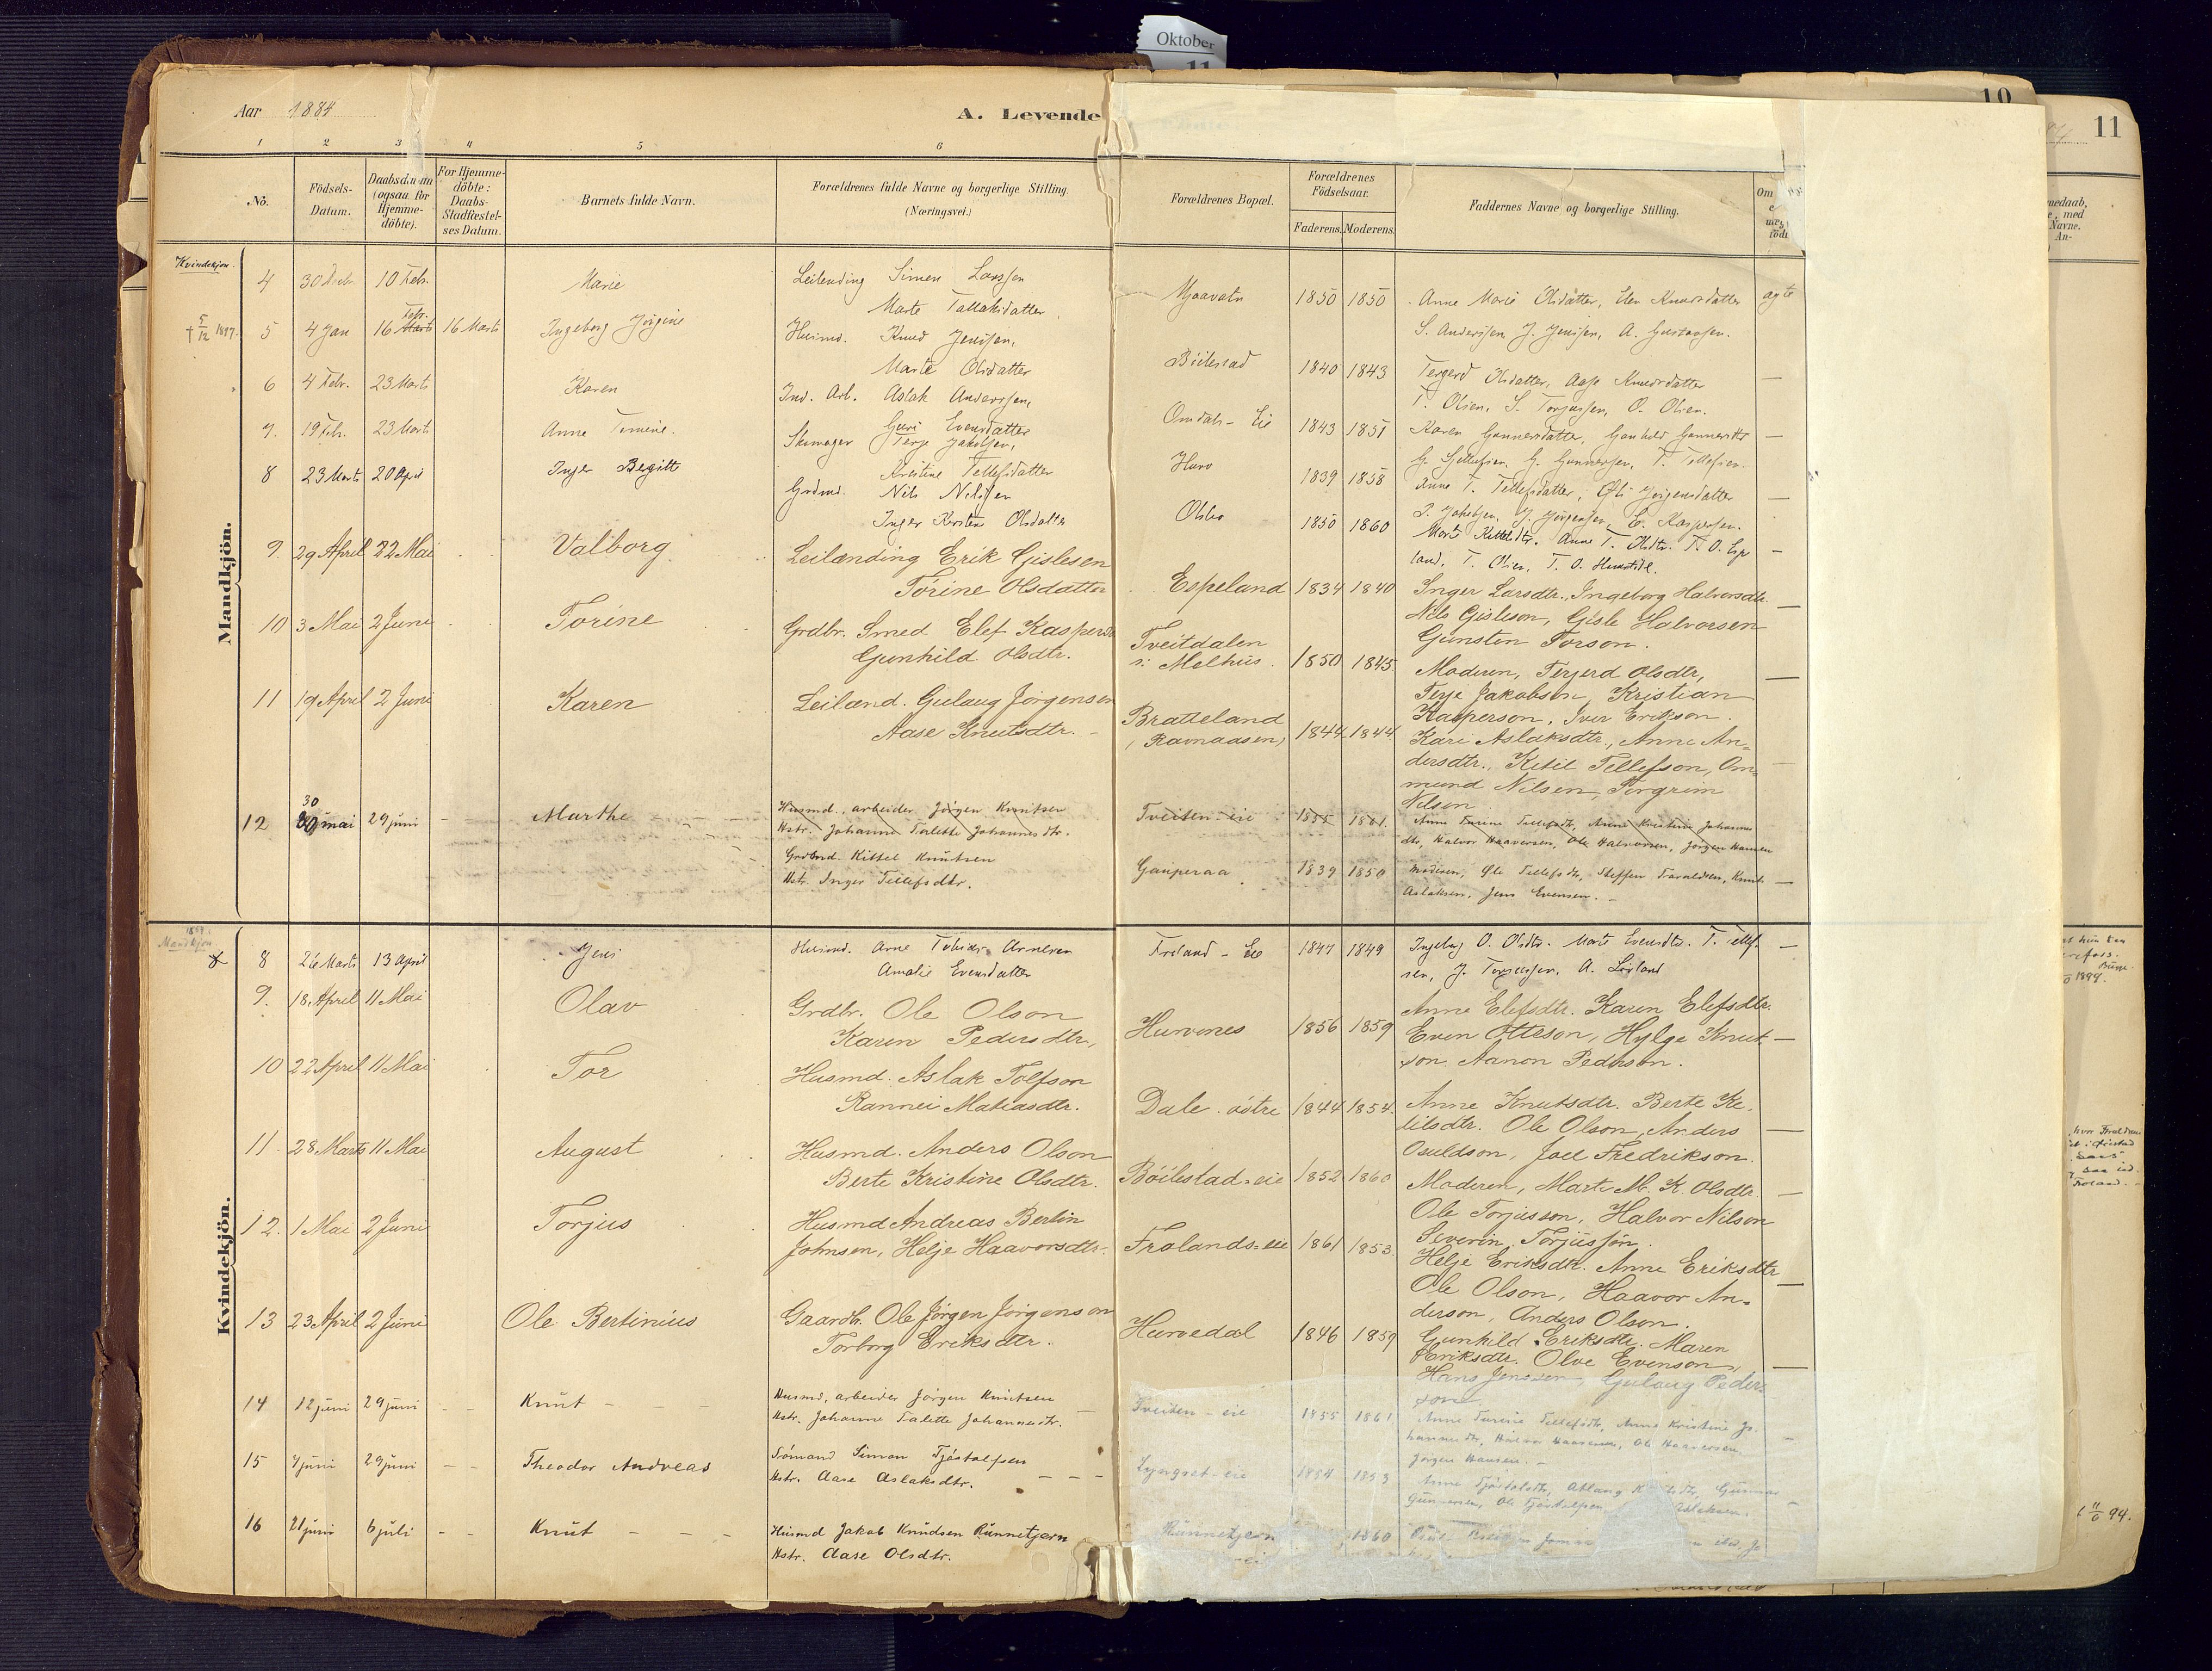 Oktober
11
Aar 1884
A. Levende
10
11
1
2
3
4
5
6
No.
Födsels-Datum.
Daabsdatum (ogsaa for Hjemme-döbte).
For Hjemme-döbte: Daabs-Stadfæstel-ses Datum.
Barnets fulde Navn.
Forældrenes fulde Navne og borgerlige Stilling. (Næringsvei.)
Forældrenes Bopæl.
Forældrenes Födselsaar.
Faderens. Moderens.
Faddernes Navne og borgerlige Stilling.
Om
Kvindekjøn.
Mandkjön.
4 30 Decbr. 10 Febr. Marie Leilending Simen Larssen
Marte Tallaksdatter
Mjaavatn 1850 1850 Anne Marie Olsdatter, Elen Knudsdatter ægte
S. Anderssen, J. Jenssen, A. Gustavsen.
† 5/12 1897. 5 4 Jan 16 Febr. Marts 16 Marts Ingeborg Jörgine Husmd. Knud Jenssen,
Marte Olsdatter
Böilestad 1840 1843 Tergerd Olsdatter, Aase Knudsdatter —
T. Olsen, S. Torjussen, O. Olsen.
6 4 Febr. 23 Marts Karen Ind. Arb. Aslak Anderssen,
Guri Evensdatter
Omdals-Eie 1843 1851 Karen Gunnersdatter, Gunhild Gunnersdtr —
G. Gunnersen, T. Tellefsen.
7. 19 Febr. 23 Marts Anne Tomine. Skomager Terje Jakobsen,
Kristine Tellefsdatter
Hurv 1839 1858 Anne T. Tellefsdatter, Jörgensdatter —
J. Jakobsen, J. Jörgensen, E. Kaspersen.
8 23 Marts 20 April Inger Bergitte Grdmd. Nils Nilssen
Inger Kirstine Olsdatter
Olsbo 1850 1860 Marte Kittelsdtr. Anne T. Olsdtr. T. O. Espe —
land, T. Olsen, T. O. Hunsdal.
9. 29 April 22 Mai Valborg Leilænding Erik Gislesen
Torine Olsdatter
Espeland 1834 1840 Inger Larsdtr., Ingeborg Halvorsdtr. —
Nils Gisleson, Gisle Halvorsen
Gunsten Torson.
10 3 Mai 2 Juni Torine Grdbr. Smed Elef Kaspers
Gunhild Olsdtr.
Tveitdalen
i Melhus. 1850 1845 Moderen, Terjerd Olsdtr, —
Terje Jakobsen, Kristian
Kasperson, Iver Erikson.
11 19 April 2 Juni Karen Leilænd. Gulaug Jørgensen
Aase Knutsdtr. -
Bratteland
(Ravnaasen) 1844 1844 Kari Aslaksdtr., Anne An-
dersdtr., Ketil Tellefson, Om-
mund Nilsen, Torgrim
Nilson
12 30 mai 29 juni - - Marthe - - - Husmd. arbeider Jörgen Knutsen
Hstr. Johanne Talette Johannesdtr.
Tveiten-eie 1855 1861 Anne Turine Tellefsdtr, Anne Kristine Johannes
dtr, Halvor Haaversen, Ole Halvorsen, Jörgen Hansen
Grdbrd. Kittel Knutsen
Hstr. Inger Tellefsdtr.
Gauperaa 1839 1850 Moderen, Øle Tellefsdtr, Steffen Taraldsen, Knut —
Aslaksen, Jens Evensen. -
1884.
Mandkjøn
Kvindekjön.
8 26 Marts 13 April Jens Husmd. Arne Tobias Arnesen
Amalie Evensdatter
Froland-Eie 1847 1849 Ingeborg O. Olsdtr. Marte Evensdtr. T. Tellef- —
sen, J. Torjussen, A. Løvland
9. 18 April 11 Mai Olav Grdbr. Ole Olson
Karen Pedersdtr,
Hurvenes 1856 1859 Anne Elefsdtr. Karen Elefsdtr.
Even Otteson, Hylge Knut- —
son Aanon Pederson.
10 22 April 11 Mai Tor Husmd. Aslak Tolfson
Rannei Matiasdtr.
Dale østre 1844 1854. Anne Knutsdtr. Berte Ke-
tilsdtr. Ole Olson, Anders —
Osuldson, Joel Fredrikson.
11 28 Marts 11 Mai August Husmd. Anders Olson
Berte Kristine Olsdtr.
Böilestad-eie 1852 1860 Moderen, Marte M. K. Olsdtr. —
Ole Torjusson, Halvor Nilson
Severin Torjussøn.
12. 1 Mai 2 Juni Torjus Husmd Andreas Bertin
Johnsen, Helje Haavorsdtr.
Frolands-eie 1861 1853 Helje Eriksdtr. Anne Eriksdtr —
Ole Olson, Haavor An-
derson, Anders Olson.
13 23 April 2 Juni Ole Bertinius Gaardbr. Ole Jørgen Jørgenson
Torborg Eriksdtr.
Hurvedal 1846 1859 Gunhild Eriksdtr. Maren
Eriksdtr. Olve Evenson, —
Hans Jenssen, Gulaug Peder-
sone
14 12 juni 29 juni - - Knut - - - Husmd. arbeider Jörgen Knutsen
Hstr. Johanne Talette Johannesdtr. -
Tveiten-eie 1855 1861 Anne Turine Tellefsdtr, Anne Kristine Jo-
hannesdtr, Halvor Haaversen, Ole Haaversen,
Jörgen Hansen. -
15 4 juni 29 juni - - Theodor Andreas Sømand Simon Tjøstolfsen
Hstr. Aase Aslaksdtr. - - -
Lyngrot-eie 1854 1853 Anne Tjøstolsdtr, Aslaug Gunnar
Gunnersen, Ole Tjøstolfsen Aslaksen.
16 21 juni 6 juli - - Knut - - - Husmd Jakob Knudsen Runnetjern
Hstr. Aase Olsdtr.
Runnetjern
eie 1860
6 11/6 94.